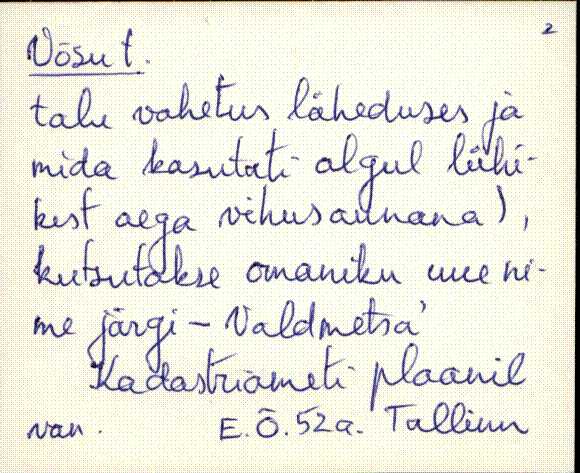 2
Võsu t.
talu vahetus läheduses ja
mida kasutati algul lühi-
kest aega vihusaunana),
kutsutakse omaniku uue ni-
me järgi - Valdmetsa'
Kadastriameti plaanil
van. E.Õ.52a. Tallinn